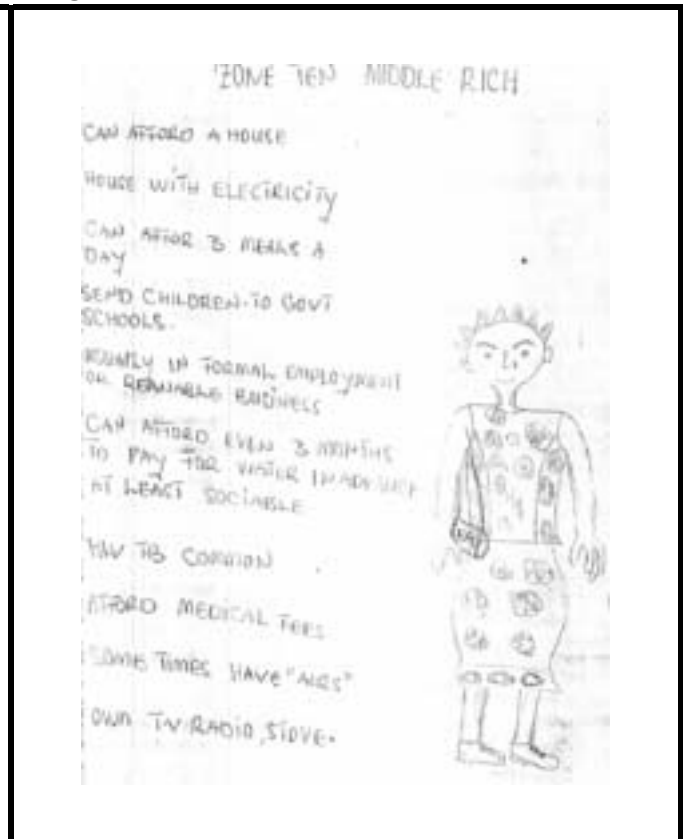 ZONE TEN MIDDLE RICH
CAN AFFORD A HOUSE
HOUSE WITH ELECTRICITY
CAN AFFOR 3 MEALS A
DAY
SEND CHILDREN TO GOVT
SCHOOLS.
IN FORMAL EMPLOYMENT
OR BUSINESS
CAN AFFORD EVEN 3 MONTHS
TO PAY FOR WATER IN
AT LEAST SOCIABLE
TB COMMON
AFFORD MEDICAL FEES
SOME TIMES HAVE "AIRS"
OWN TV RADIO, STOVE.